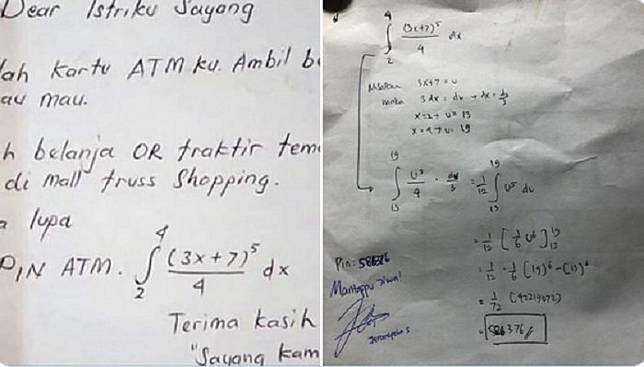 Dear Istriku Sayang
lah kartu ATM ku. Ambil b
au mau.
h belanja OR traktir tem
di mall truss shopping.
lupa
PIN ATM. ∫₂⁴ (3x+7)⁵/4 dx
Terima kasih
"Sayang kam
∫₂⁴ (3x+7)⁵/4 dx
3x+7 = u
maka 3 dx = du → dx = du/3
x=2 → u = 13
x=4 → u = 19
∫₁₃¹⁹ u⁵/4 · du/3 = 1/12 ∫₁₃¹⁹ u⁵ du
= 1/12 [1/6 u⁶]₁₃¹⁹
= 1/12 · 1/6 [(19)⁶ - (13)⁶
= 1/72 (42219072)
= 586376
Pin: 586376
Mantappu Jiwa!